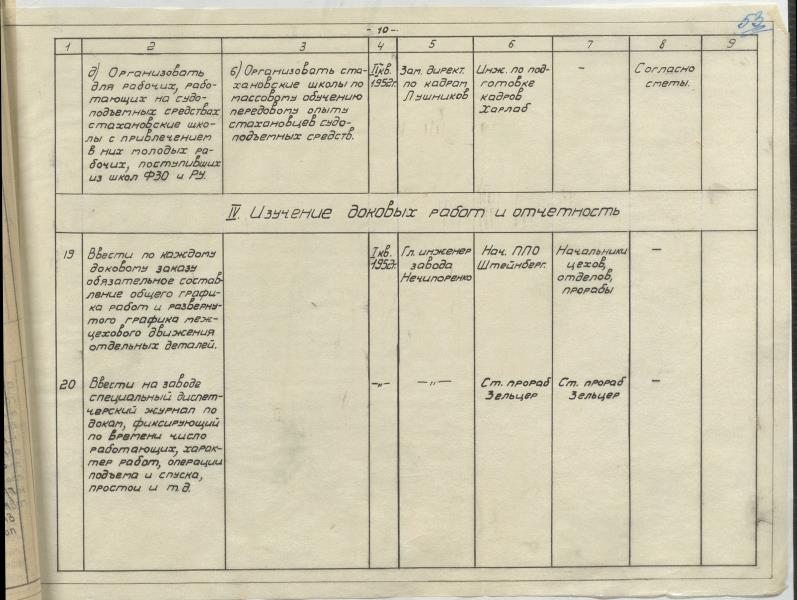 - 10 -
53
1 2 3 4 5 6 7 8 9
д) Организовать
для рабочих, рабо-
тающих на судо-
подъемных средствах
стахановские шко-
лы с привлечением
в них молодых ра-
бочих, поступивших
из школ ФЗО и РУ.
б) Организовать ста-
хановские школы по
массовому обучению
передовому опыту
стахановцев судо-
подъемных средств.
II кв.
1952г.
Зам. директ.
по кадрам
Лушников
Инж. по под-
готовке
кадров
Харлаб
–
Согласно
сметы.
IV. Изучение доковых работ и отчетность
19
Ввести по каждому
доковому заказу
обязательное состав-
ление общего графи-
ка работ и разверну-
того графика меж-
цехового движения
отдельных деталей.
I кв.
1952г.
Гл. инженер
завода
Нечипоренко
Нач. ППО
Штейнберг.
Начальники
цехов,
отделов,
прорабы
–
20
Ввести на заводе
специальный диспет-
черский журнал по
докам, фиксирующий
по времени число
работающих, харак-
тер работ, операции
подъема и спуска,
простои и т.д.
–"–
–"–
Ст. прораб
Зельцер
Ст. прораб
Зельцер
–